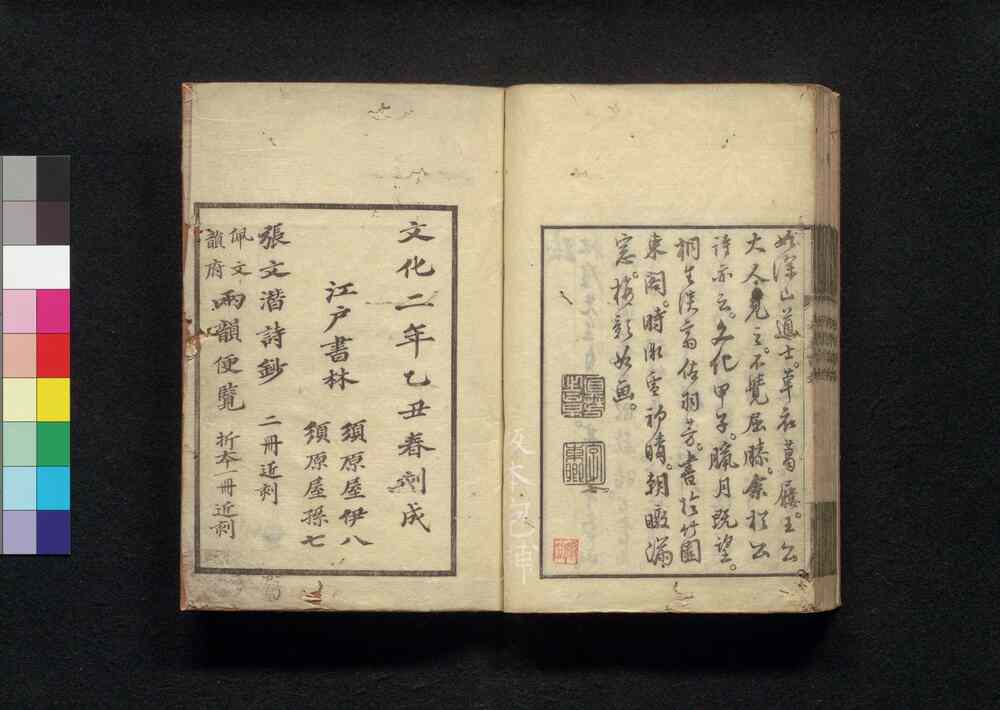 如深山道士。草衣葛屨。王公
大人見之。不覺屈膝。余於公
詩亦云。文化甲子。臘月既望。
桐生淡斎佐羽芳。書於竹園
東閣。時微雪初晴。朝暾満
窓。梅影如画。
文化二年乙丑春刻成
江戸書林
須原屋伊八
須原屋孫七
張文潜詩鈔 二冊近刻
佩文
韻府
両韻便覧 折本一冊近刻